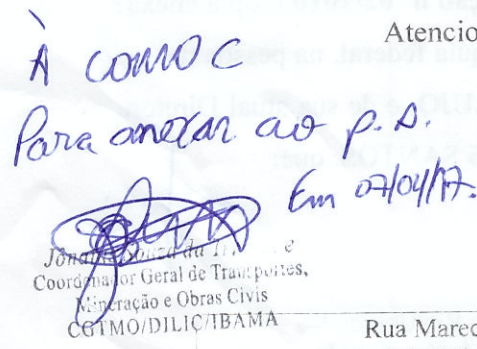 Atencio
À COMOC
Para anexar ao p.A.
Em 07/04/17.
Coordenador Geral de Transportes,
Mineração e Obras Civis
CGTMO/DILIC/IBAMA
Rua Marec